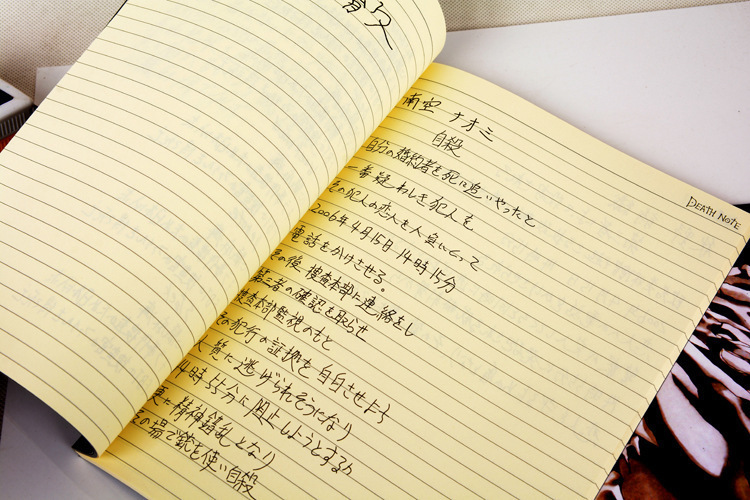 DEATH NOTE
南空 ナオミ
自殺
自分の婚約者を死に追いやったと
一番疑わしき犯人を
その犯人の恋人を人質にとって
2006年4月15日 14時15分
電話をかけさせる。
その後、捜査本部に連絡をし
第三者の確認を取らせ
捜査本部監視のもと
その犯行の証拠を自白させよう
人質に逃げられそうになり
4時55分に阻止しようとするが
更に精神錯乱となり
その場で銃を使い自殺